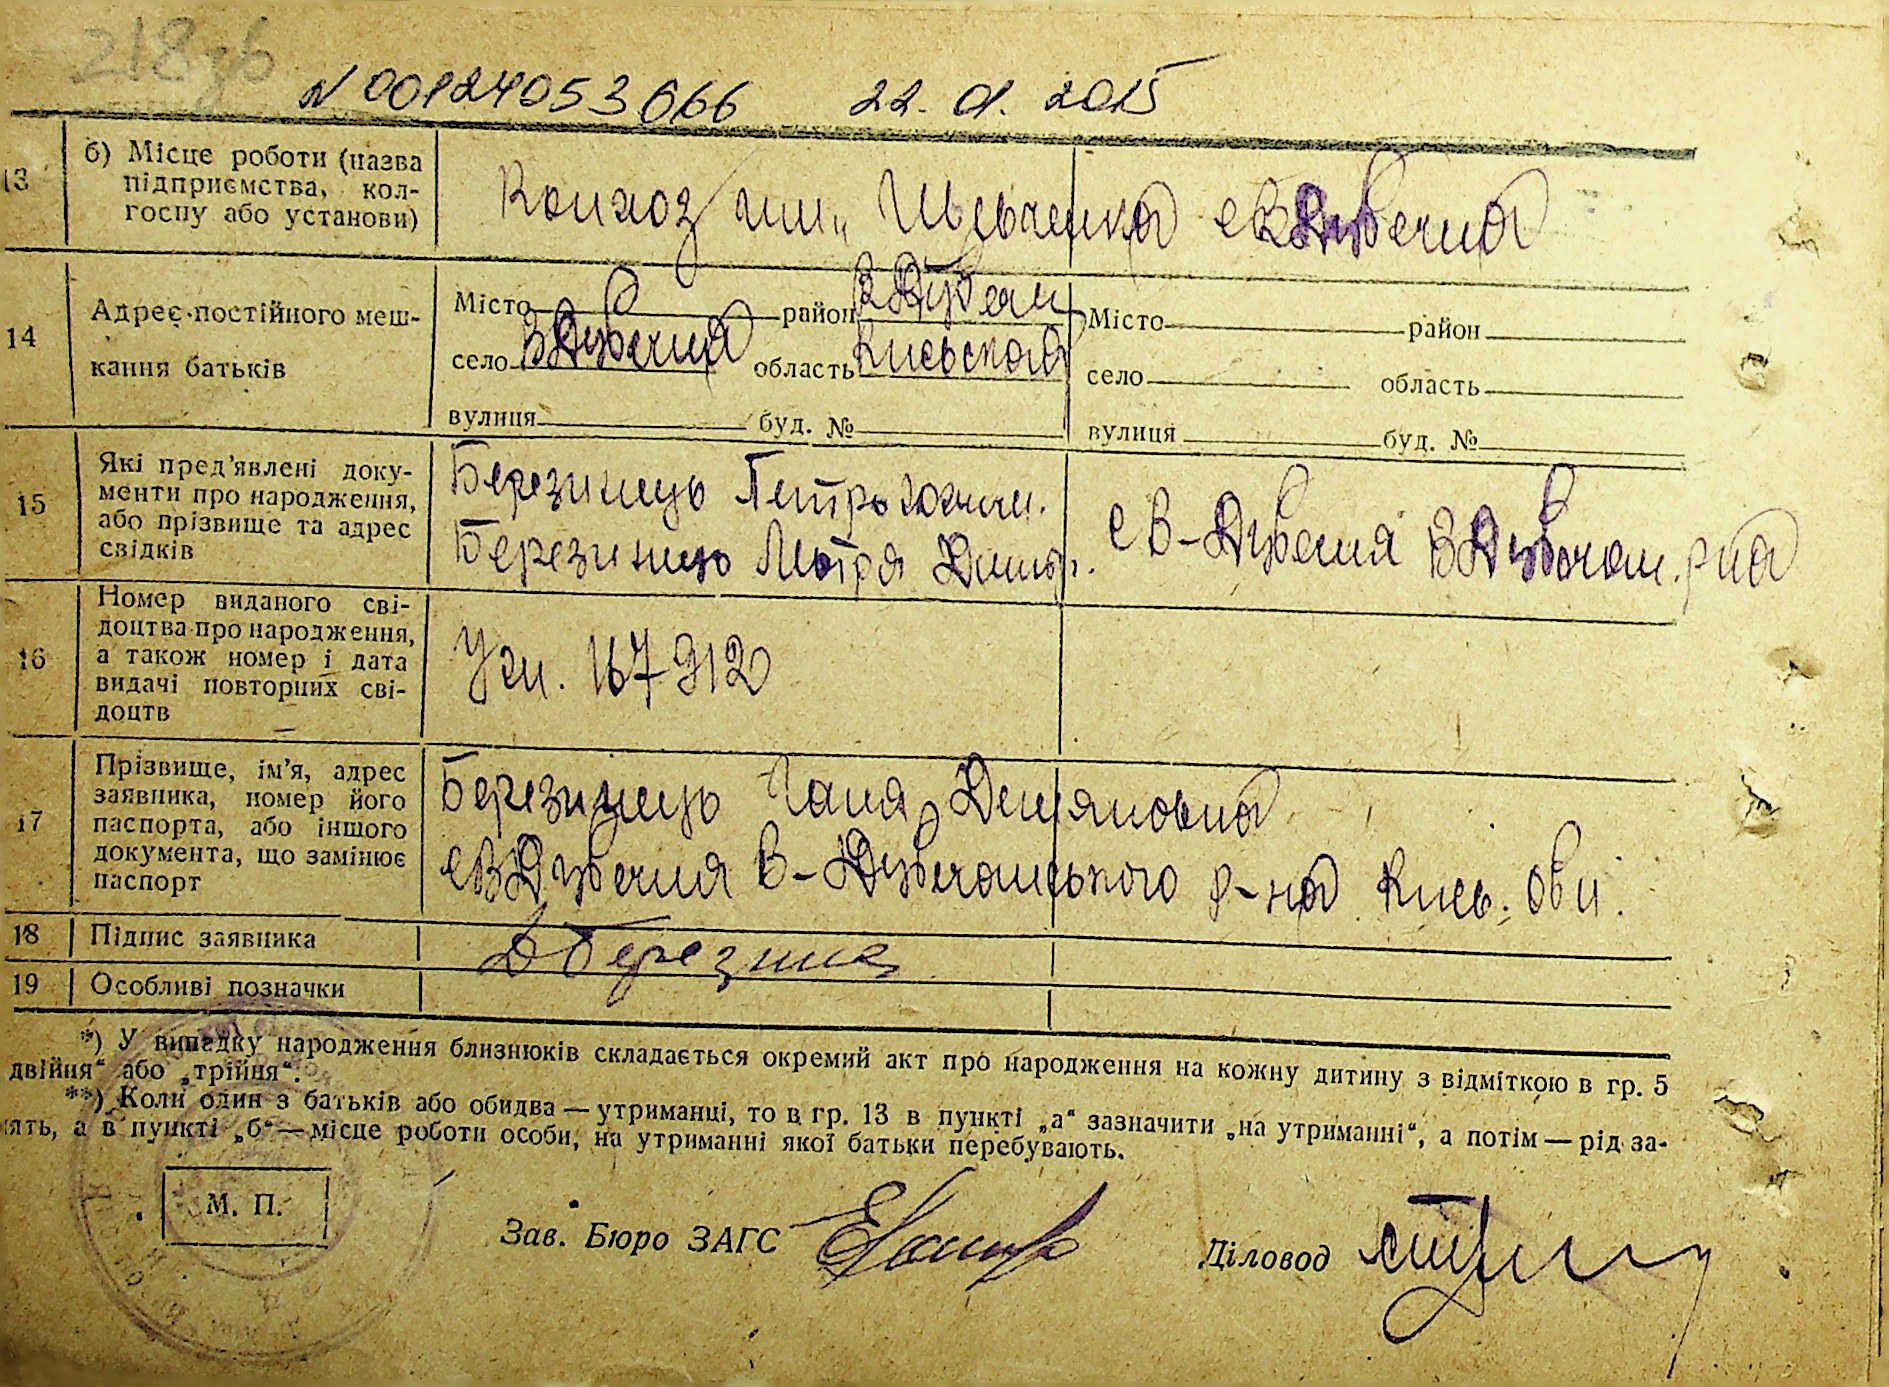 218зв
N 00124053666 22.01.2015
13
б) Місце роботи (назва
підприємства, кол-
госпу або установи)
Колхоз им. Шевченка с В Дубечня
14
Адрес постійного меш-
кання батьків
Місто район В Дубечан
село В Дубечня область Киевская
вулиця буд. №
Місто район
село область
вулиця буд. №
15
Які пред'явлені доку-
менти про народження,
або прізвище та адрес
свідків
Березинець Петро
Березинець Мотря
с В-Дубечня В Дубечан. р-на
16
Номер виданого сві-
доцтва про народження,
а також номер і дата
видачі повторних сві-
доцтв
167912
17
Прізвище, ім'я, адрес
заявника, номер його
паспорта, або іншого
документа, що замінює
паспорт
Березинець Галя Демяновна
с В Дубечня В-Дубечанського р-на Киев. обл.
18
Підпис заявника
19
Особливі позначки
*) У випадку народження близнюків складається окремий акт про народження на кожну дитину з відміткою в гр. 5
двійня" або „трійня".
**) Коли один з батьків або обидва — утриманці, то в гр. 13 в пункті „а" зазначити „на утриманні", а потім — рід за-
ять, а в пункті „б" — місце роботи особи, на утриманні якої батьки перебувають.
М. П.
Зав. Бюро ЗАГС
Діловод